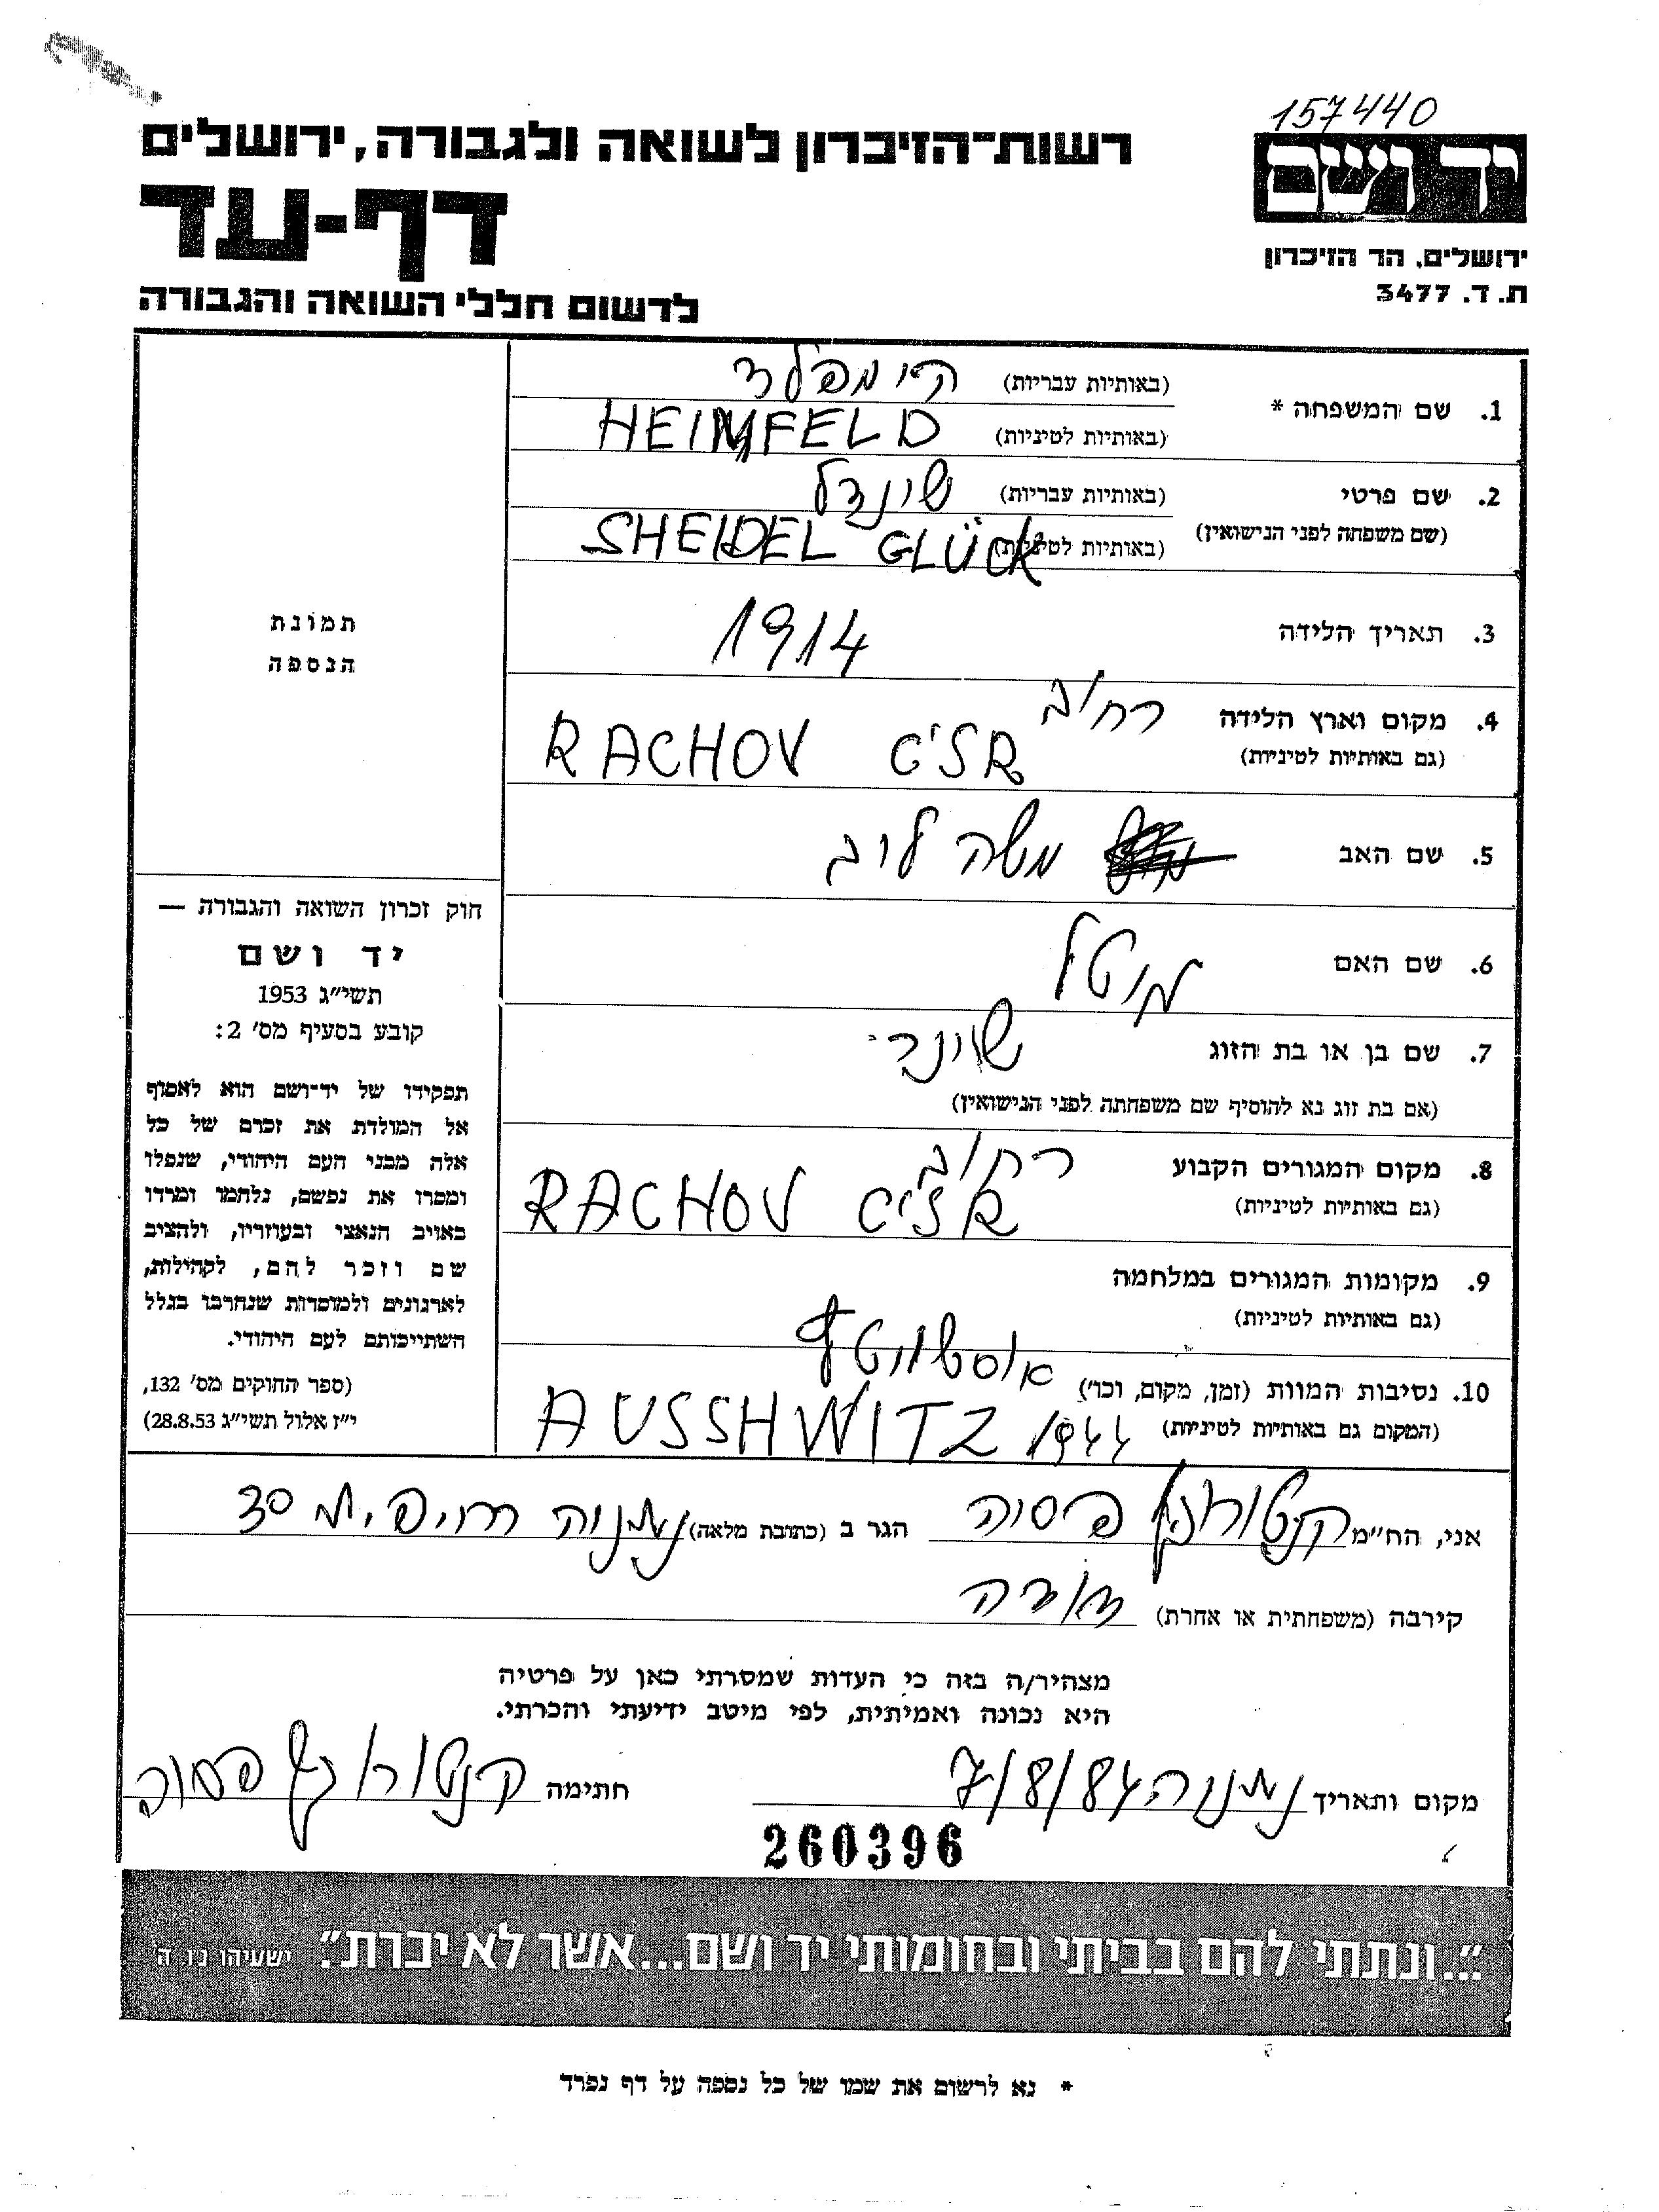 157440
רשות־הזיכרון לשואה ולגבורה, ירושלים
יד ושם
דף-עד
ירושלים, הר הזיכרון
ת. ד. 3477
לרשום חללי השואה והגבורה
1. שם המשפחה * (באותיות עבריות) היימפלד
(באותיות לטיניות) HEIMFELD
2. שם פרטי (באותיות עבריות) שינדל
(שם משפחה לפני הנישואין) (באותיות לטיניות) SHEIDEL GLÜCK
3. תאריך הלידה 1914
4. מקום וארץ הלידה רחוב
(גם באותיות לטיניות) RACHOV C'SR
5. שם האב משה לוב
6. שם האם
7. שם בן או בת הזוג
(אם בת זוג נא להוסיף שם משפחתה לפני הנישואין)
8. מקום המגורים הקבוע רחוב
(גם באותיות לטיניות) RACHOV C'SR
9. מקומות המגורים במלחמה
(גם באותיות לטיניות)
10. נסיבות המוות (זמן, מקום, וכו') אוסשוויטץ
(המקום גם באותיות לטיניות) AUSSHWITZ 1944
תמונת
הנספה
חוק זכרון השואה והגבורה —
יד ושם
תשי״ג 1953
קובע בסעיף מס׳ 2:
תפקידו של יד־ושם הוא לאסוף
אל המולדת את זכרם של כל
אלה מבני העם היהודי, שנפלו
ומסרו את נפשם, נלחמו ומרדו
באויב הנאצי ובעוזריו, ולהציב
שם וזכר להם, לקהילות,
לארגונים ולמוסדות שנחרבו בגלל
השתייכותם לעם היהודי.
(ספר החוקים מס׳ 132,
י״ז אלול תשי״ג 28.8.53)
אני, הח״מ הגר ב (כתובת מלאה) נתניה 30
קירבה (משפחתית או אחרת)
מצהיר/ה בזה כי העדות שמסרתי כאן על פרטיה
היא נכונה ואמיתית, לפי מיטב ידיעתי והכרתי.
מקום ותאריך נתניה 7/8/84 חתימה
260396
״...ונתתי להם בביתי ובחומותי יד ושם...אשר לא יכרת״. ישעיהו נו ה׳
* נא לרשום את שמו של כל נספה על דף נפרד